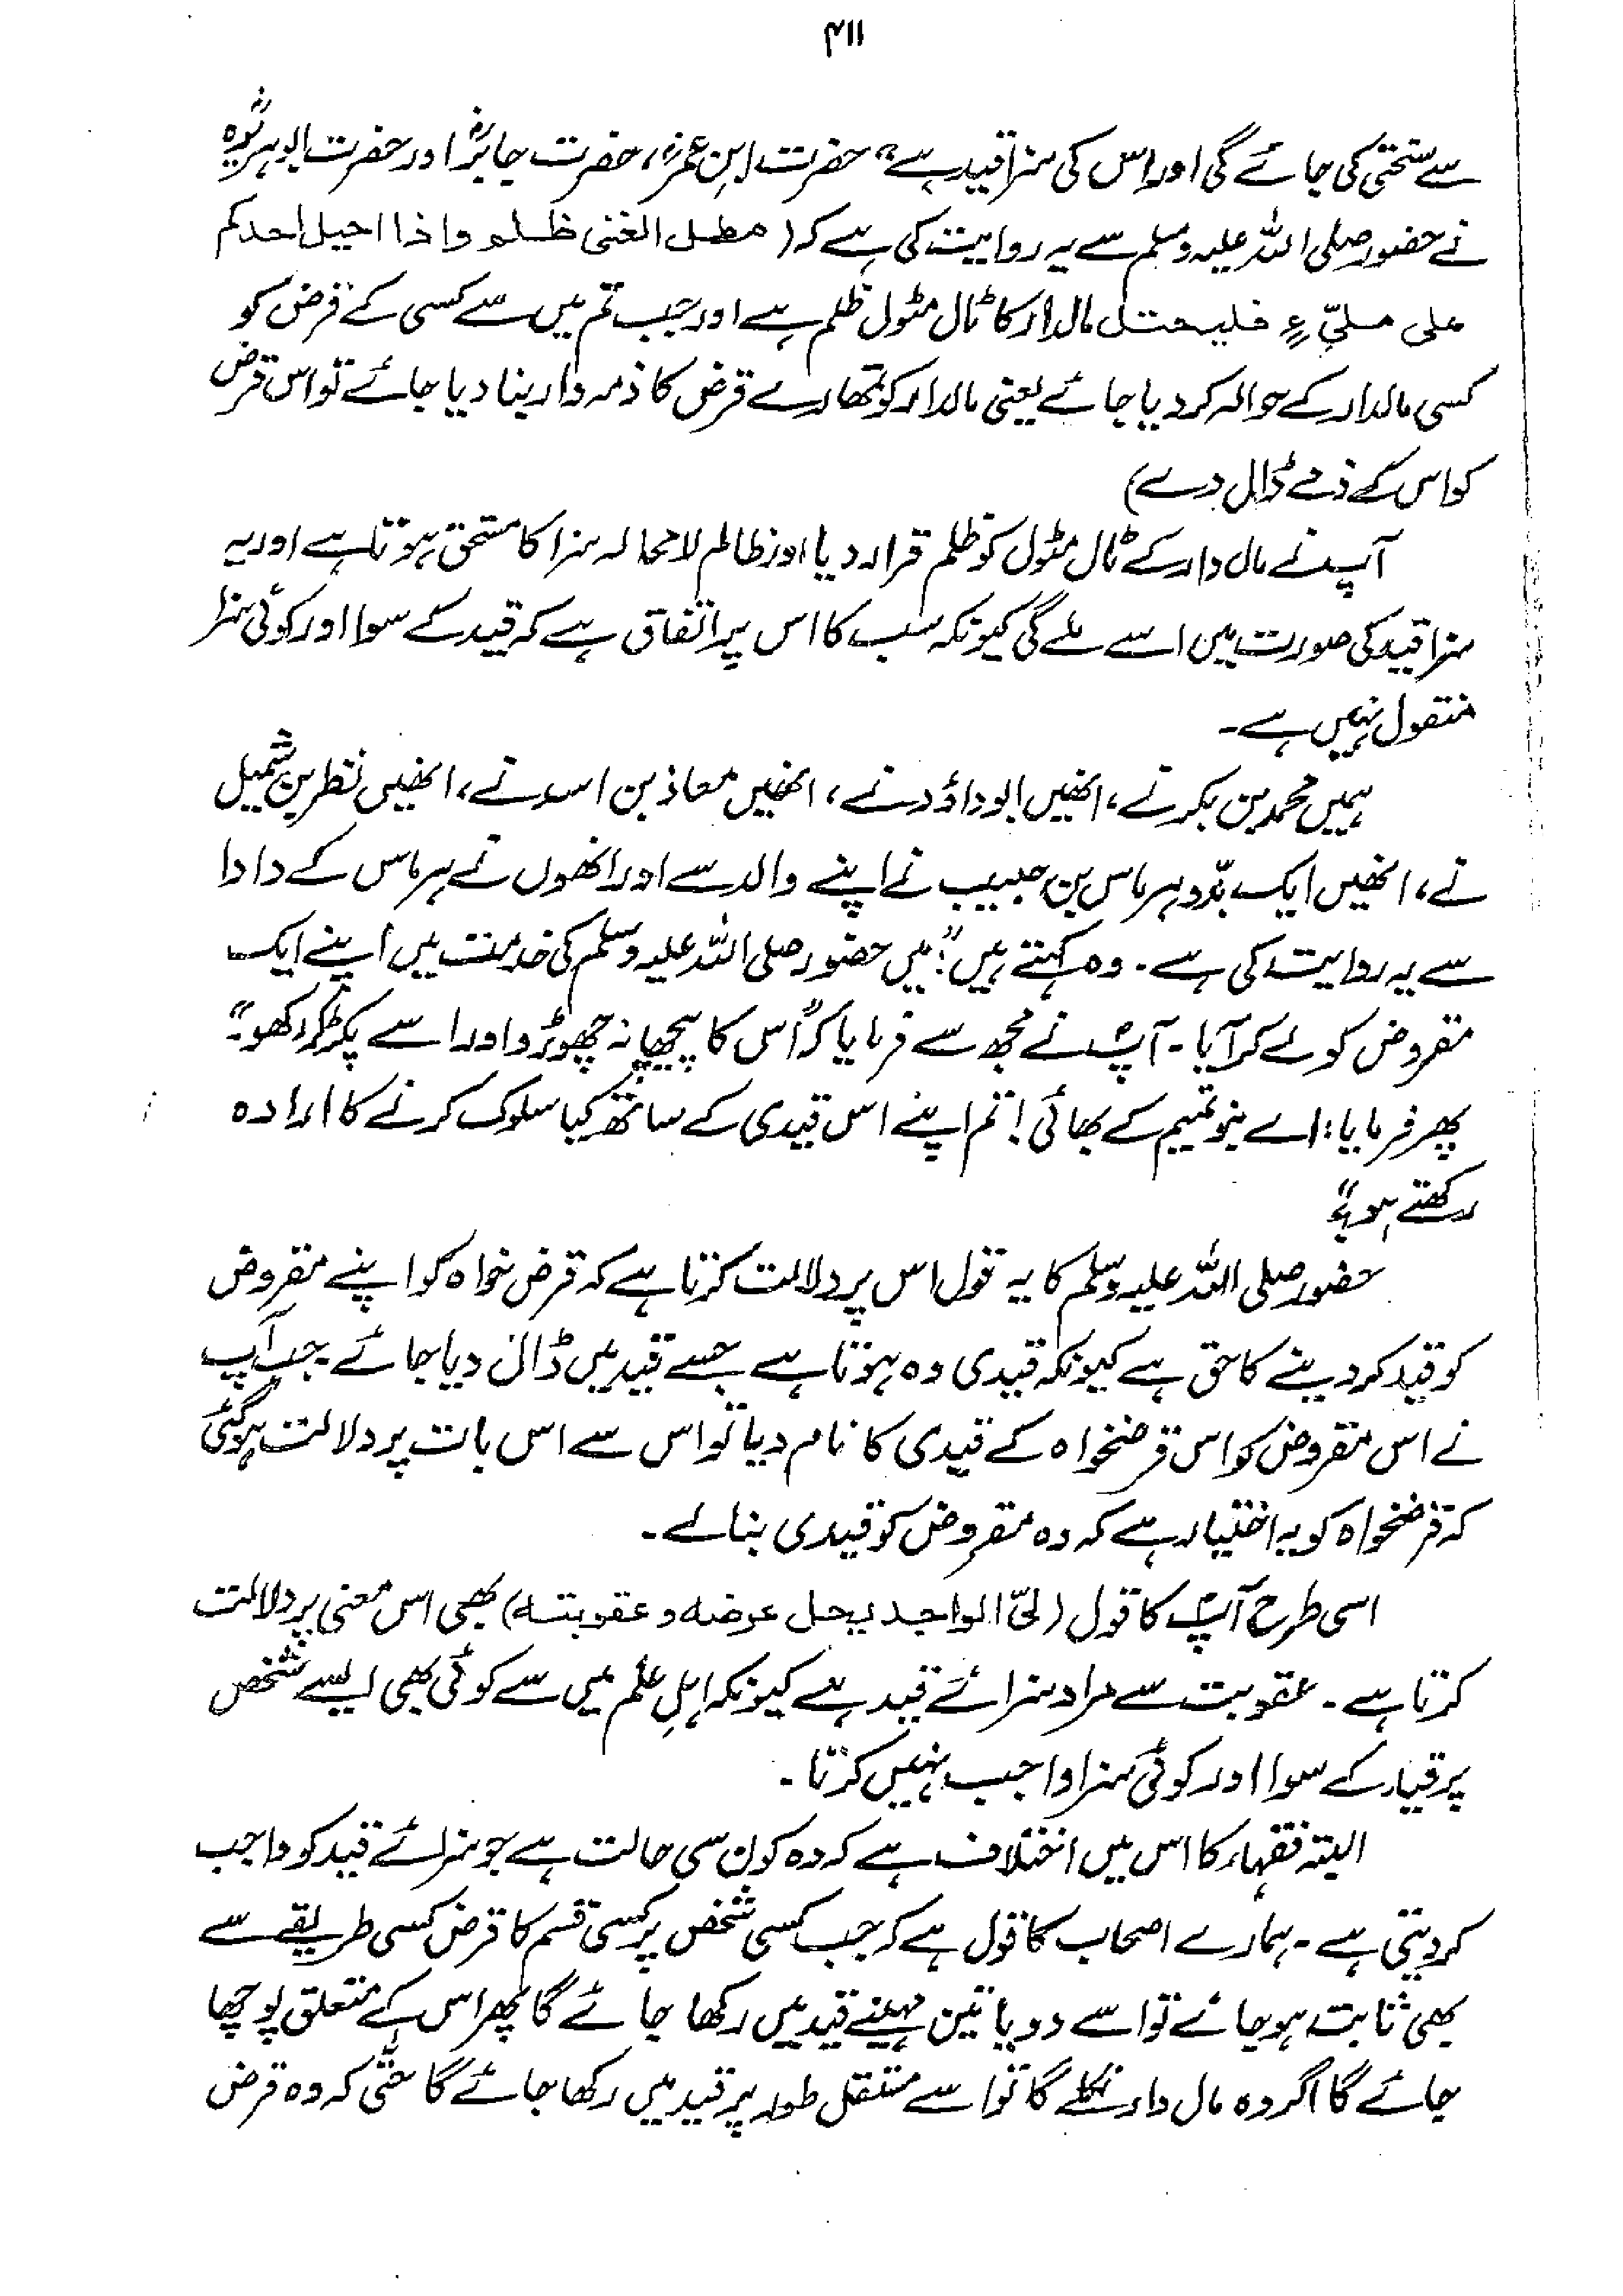 ۴۱۱
سے سختی کی جائے گی اور اس کی سزا قید ہے" حضرت ابن عمرؓ، حضرت جابرؓ اور حضرت ابوہریرہؓ
نے حضور صلی اللہ علیہ وسلم سے یہ روایت کی ہے کہ (مطل الغنی ظلم واذا احیل احدکم
علی ملیّءٍ فلیحتل مالدار کا ٹال مٹول ظلم ہے اور جب تم میں سے کسی کے قرض کو
کسی مالدار کے حوالہ کر دیا جائے یعنی مالدار کو تمھارے قرض کا ذمہ دار بنا دیا جائے تو اس قرض
کو اس کے ذمے ڈال دے)
آپ نے مال دار کے ٹال مٹول کو ظلم قرار دیا اور ظالم لامحالہ سزا کا مستحق ہوتا ہے اور یہ
سزا قید کی صورت میں اسے ملے گی کیونکہ سب کا اس پر اتفاق ہے کہ قید کے سوا اور کوئی سزا
منقول نہیں ہے۔
ہمیں محمد بن بکر نے، انھیں ابوداؤد نے، انھیں معاذ بن اسد نے، انھیں نضر بن شمیل
نے، انھیں ایک بدّو ہرماس بن حبیب نے اپنے والد سے اور انھوں نے ہرماس کے دادا
سے یہ روایت کی ہے۔ وہ کہتے ہیں: "میں حضور صلی اللہ علیہ وسلم کی خدمت میں اپنے ایک
مقروض کو لے کر آیا۔ آپؐ نے مجھ سے فرمایا کہ "اس کا پیچھا نہ چھوڑو اور اسے پکڑ کر رکھو۔"
پھر فرمایا: اے بنو تمیم کے بھائی! تم اپنے اس قیدی کے ساتھ کیا سلوک کرنے کا ارادہ
رکھتے ہو؟"
حضور صلی اللہ علیہ وسلم کا یہ قول اس پر دلالت کرتا ہے کہ قرض خواہ کو اپنے مقروض
کو قید کر دینے کا حق ہے کیونکہ قیدی وہ ہوتا ہے جسے قید میں ڈال دیا جائے۔ جب آپ
نے اس مقروض کو اس قرضخواہ کے قیدی کا نام دیا تو اس سے اس بات پر دلالت ہو گئی
کہ قرضخواہ کو یہ اختیار ہے کہ وہ مقروض کو قیدی بنالے۔
اسی طرح آپؐ کا قول (لیّ الواجد یحل عرضہ وعقوبتہ) بھی اس معنی پر دلالت
کرتا ہے۔ عقوبت سے مراد سزائے قید ہے کیونکہ اہلِ علم میں سے کوئی بھی ایسے شخص
پر قید کے سوا اور کوئی سزا واجب نہیں کرتا۔
البتہ فقہاء کا اس میں اختلاف ہے کہ وہ کون سی حالت ہے جو سزائے قید کو واجب
کر دیتی ہے۔ ہمارے اصحاب کا قول ہے کہ جب کسی شخص پر کسی قسم کا قرض کسی طریقے سے
بھی ثابت ہو جائے تو اسے دو یا تین مہینے قید میں رکھا جائے گا پھر اس کے متعلق پوچھا
جائے گا اگر وہ مال دار نکلے گا تو اسے مستقل طور پر قید میں رکھا جائے گا حتّٰی کہ وہ قرض